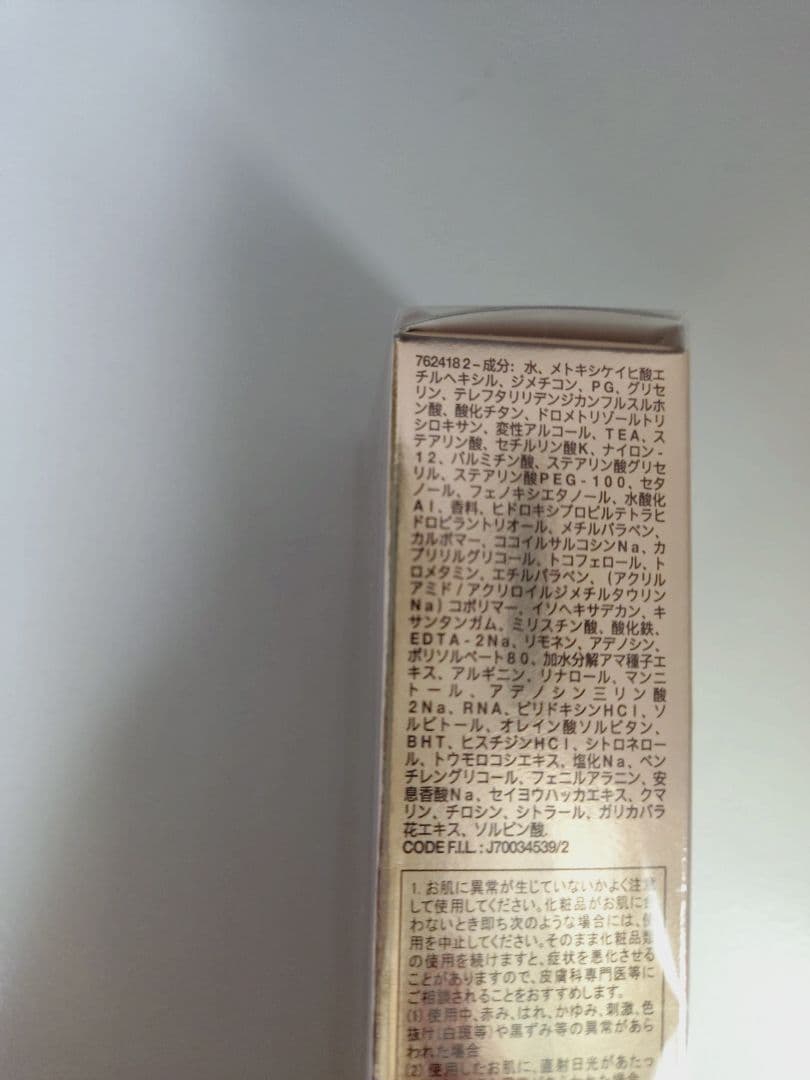 762418 2-成分: 水、メトキシケイヒ酸エ
チルヘキシル、ジメチコン、PG、グリセ
リン、テレフタリリデンジカンフルスルホ
ン酸、酸化チタン、ドロメトリゾールトリ
シロキサン、変性アルコール、TEA、ス
テアリン酸、セチルリン酸K、ナイロン-
12、パルミチン酸、ステアリン酸グリセ
リル、ステアリン酸PEG-100、セタ
ノール、フェノキシエタノール、水酸化
Al、香料、ヒドロキシプロピルテトラヒ
ドロピラントリオール、メチルパラベン、
カルボマー、ココイルサルコシンNa、カ
プリリルグリコール、トコフェロール、ト
ロメタミン、エチルパラベン、(アクリル
アミド/アクリロイルジメチルタウリン
Na)コポリマー、イソヘキサデカン、キ
サンタンガム、ミリスチン酸、酸化鉄、
EDTA-2Na、リモネン、アデノシン、
ポリソルベート80、加水分解アマ種子エ
キス、アルギニン、リナロール、マンニ
トール、アデノシン三リン酸
2Na、RNA、ピリドキシンHCl、ソ
ルビトール、オレイン酸ソルビタン、
BHT、ヒスチジンHCl、シトロネロー
ル、トウモロコシエキス、塩化Na、ペン
チレングリコール、フェニルアラニン、安
息香酸Na、セイヨウハッカエキス、クマ
リン、チロシン、シトラール、ガリカバラ
花エキス、ソルビン酸
CODE F.I.L.: J70034539/2
1. お肌に異常が生じていないかよく注意
して使用してください。化粧品がお肌に合
わないとき即ち次のような場合には、使
用を中止してください。そのまま化粧品類
の使用を続けますと、症状を悪化させる
ことがありますので、皮膚科専門医等に
ご相談されることをおすすめします。
(1) 使用中、赤み、はれ、かゆみ、刺激、色
抜け(白斑等)や黒ずみ等の異常があら
われた場合
(2) 使用したお肌に、直射日光があたっ